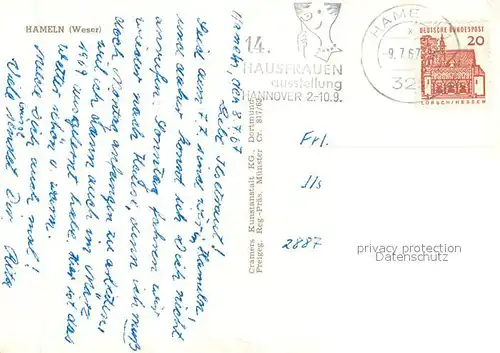 HAMELN (Weser)
Hameln, den 8.7.67
Seit dem 7.7. sind wir in Hameln
und daher konnt ich Dich nicht
anrufen. Sonntag fahren wir
wieder nach Hause, denn ich muß
doch Montag anfangen zu arbeiten,
weil ich dann auch im März
1969 ausgelernt habe. Hier ist das
Wetter schön u. warm.
Melde Dich auch mal!
Cramers Kunstanstalt KG., Dortmund
Freigeg. Reg.-Präs. Münster Cr. 817/63
14.
HAUSFRAUEN
ausstellung
HANNOVER 2.-10.9.
HAMELN
9.7.67
32
DEUTSCHE BUNDESPOST
20
LORSCH/HESSEN
Frl.
2887
privacy protection
Datenschutz